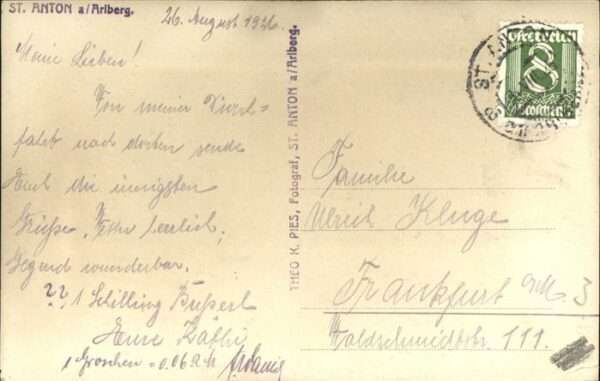 ST. ANTON a/Arlberg.
26. August 1926
Meine Lieben!
Von meiner
fahrt nach dorten sende
Euch die innigsten
Grüße. sehr herrlich,
Gegend wunderbar.
?? 1 Schilling Busserl
Eure Käthi
1 Groschen = 0.06 R.M
THEO K. PIES, Fotograf, ST. ANTON a/Arlberg.
Oesterreich
8
Groschen
ST. ANTON
Familie
Ulrich Kluge
Frankfurt a/M. 3
Waldschmidtstr. 111.